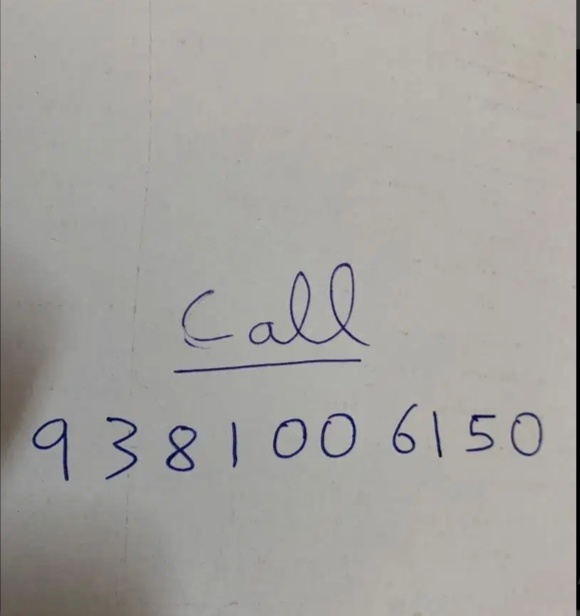 Call
9381006150